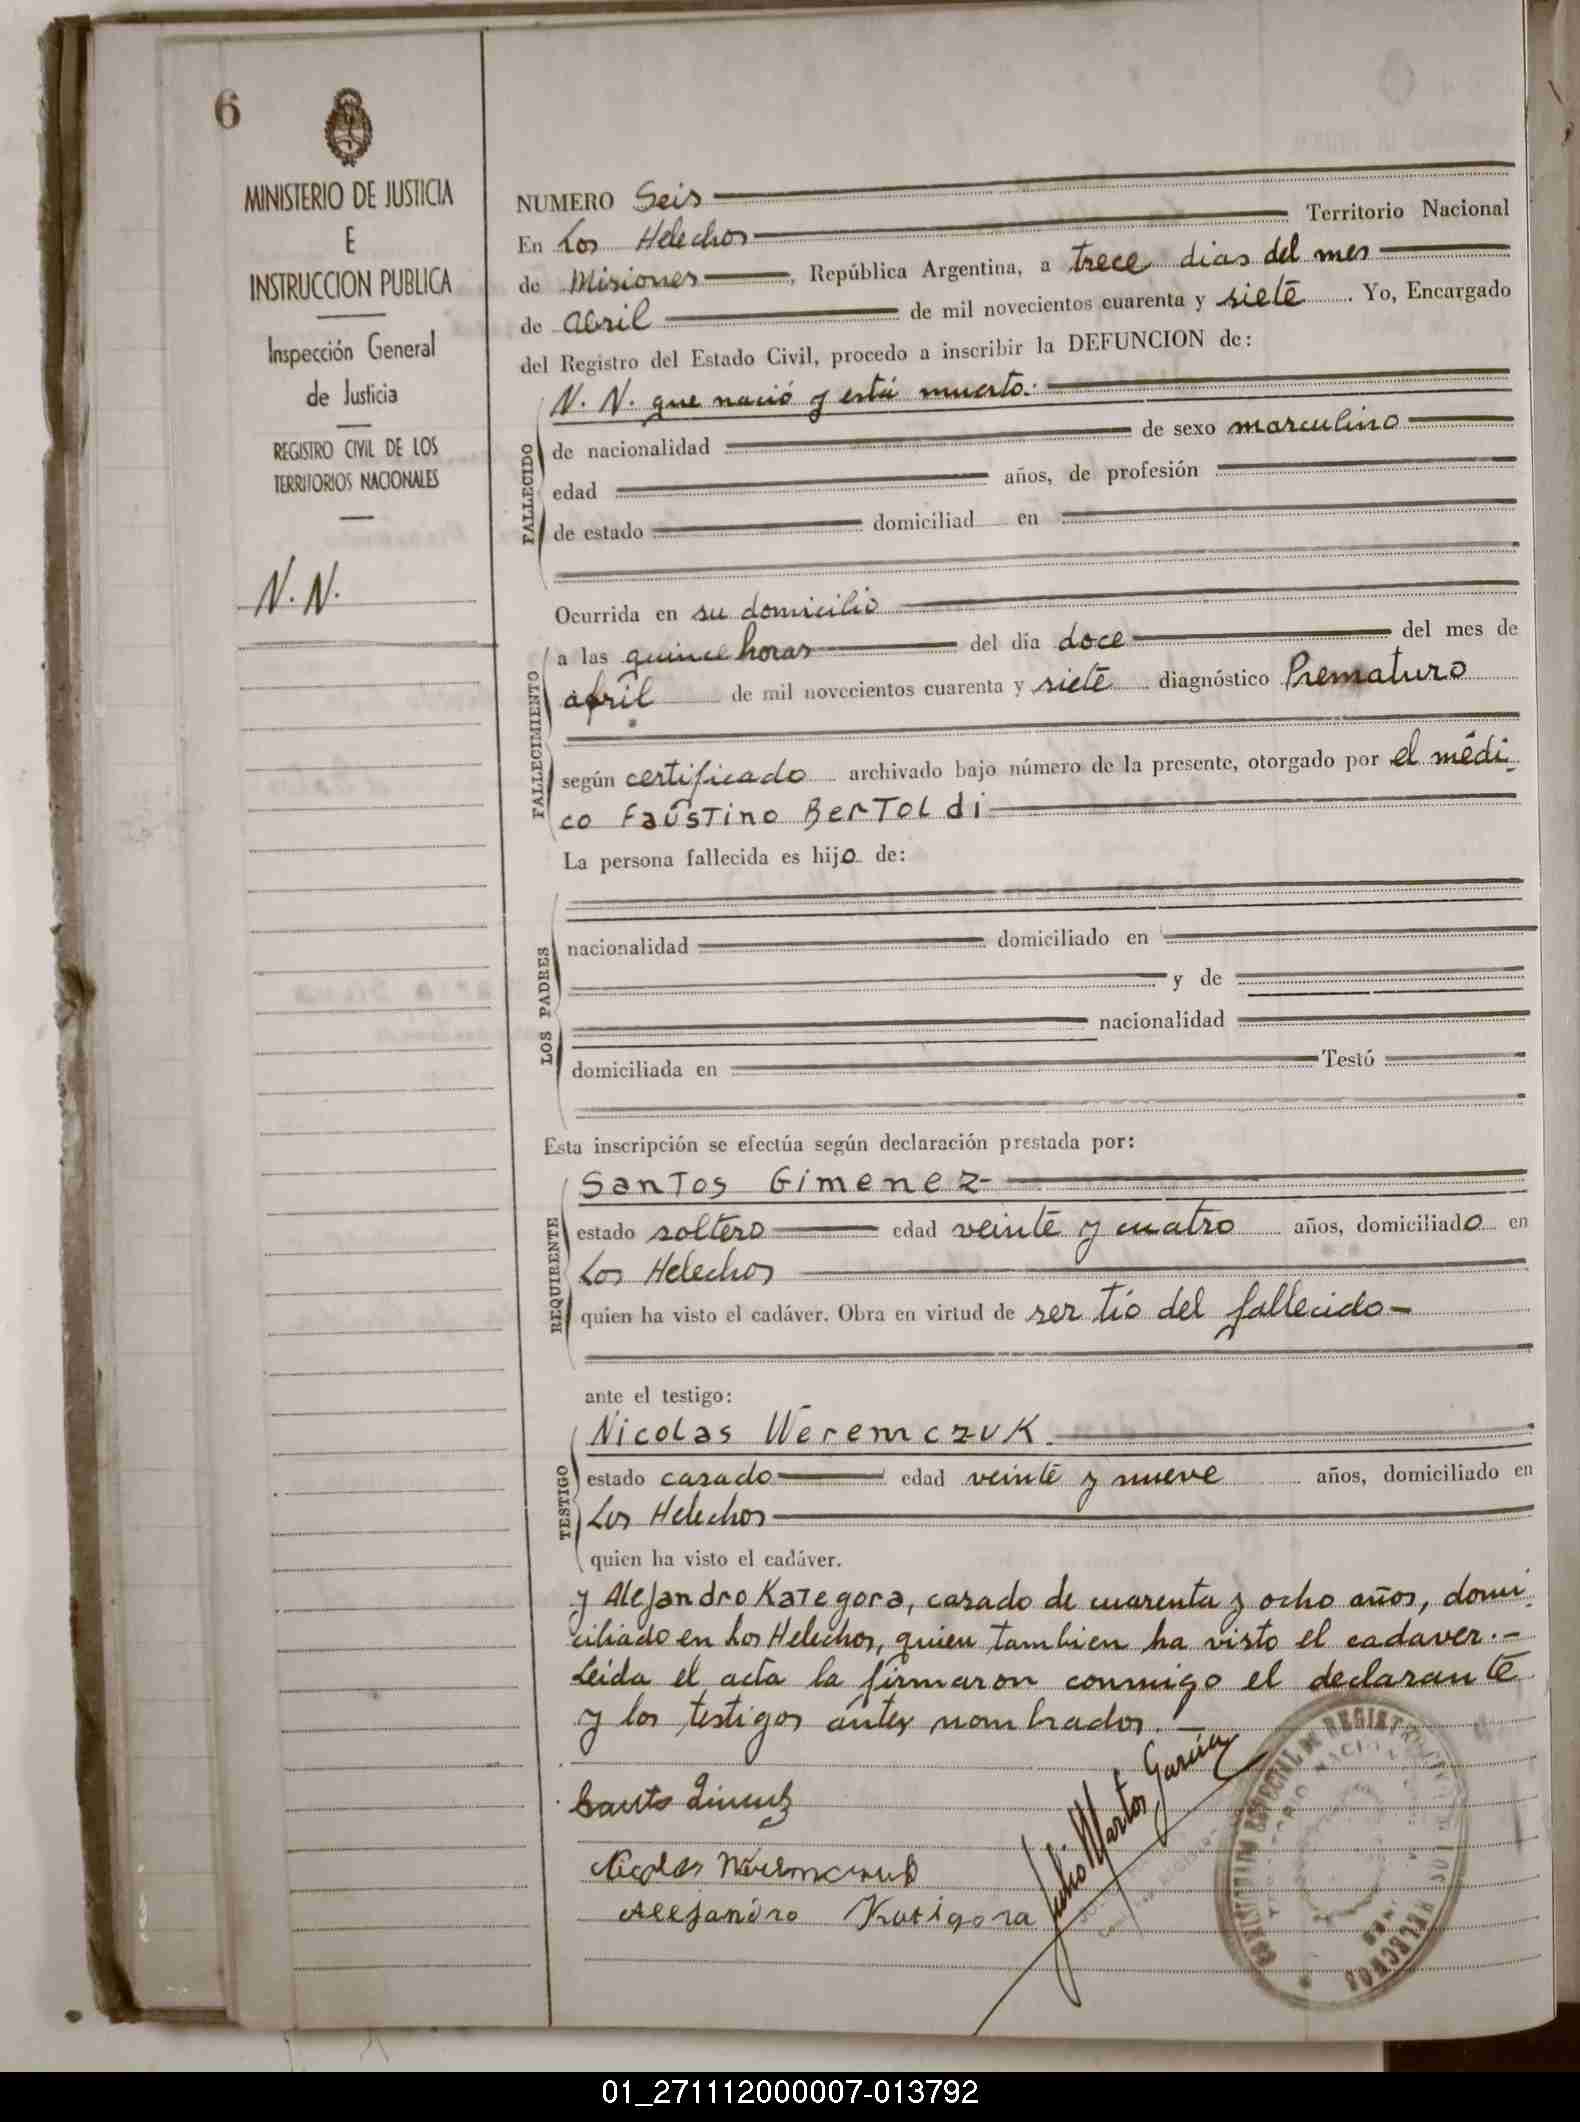 6
MINISTERIO DE JUSTICIA
E
INSTRUCCION PUBLICA
Inspección General
de Justicia
REGISTRO CIVIL DE LOS
TERRITORIOS NACIONALES
N. N.
NUMERO Seis
En Los Helechos Territorio Nacional
de Misiones, República Argentina, a trece dias del mes
de abril de mil novecientos cuarenta y siete. Yo, Encargado
del Registro del Estado Civil, procedo a inscribir la DEFUNCION de:
N. N. que nació y está muerto.
FALLECIDO
de nacionalidad de sexo masculino
edad años, de profesión
de estado domiciliad en
Ocurrida en su domicilio
FALLECIMIENTO
a las quince horas del día doce del mes de
abril de mil novecientos cuarenta y siete diagnóstico Prematuro
según certificado archivado bajo número de la presente, otorgado por el médi-
co Faustino Bertoldi
La persona fallecida es hijo de:
LOS PADRES
nacionalidad domiciliado en
y de
nacionalidad
domiciliada en Testó
Esta inscripción se efectúa según declaración prestada por:
REQUIRENTE
Santos Gimenez-
estado soltero edad veinte y cuatro años, domiciliado en
Los Helechos
quien ha visto el cadáver. Obra en virtud de ser tio del fallecido-
ante el testigo:
TESTIGO
Nicolas Weremczuk.
estado casado edad veinte y nueve años, domiciliado en
Los Helechos
quien ha visto el cadáver.
y Alejandro Kategora, casado de cuarenta y ocho años, domi-
ciliado en Los Helechos, quien tambien ha visto el cadaver.-
Leida el acta la firmaron conmigo el declarante
y los testigos antes nombrados.-
Santos Gimenez
Nicolas Weremczuk
Alejandro Katigora
Julio Martos Garcia
ESPECIAL DE REGISTRO
LOS HELECHOS
01_271112000007-013792